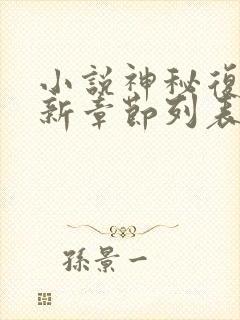 小說神秘復
新章節列表
孫景一